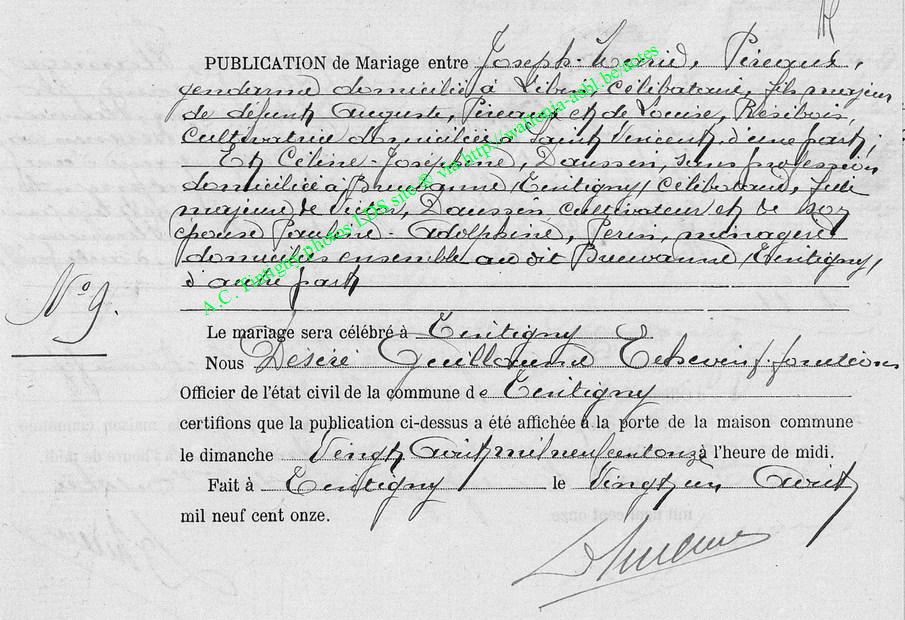 PUBLICATION de Mariage entre Joseph-Marie, Pireaux,
gendarme domicilié à Libin, célibataire, fils majeur
de défunt Auguste, Pireaux et de Louise, Résibois,
cultivatrice domiciliée à Saint Vincent, d'une part;
Et Céline-Joséphine, Daussin, sans profession
domiciliée à Breuvanne/Tintigny/Célibataire, fille
majeure de Victor, Daussin, cultivateur et de son
épouse Pauline-Adolphine, Perin, ménagère
domiciliés ensemble au dit Breuvanne/Tintigny/
d'autre part
N° 9.
Le mariage sera célébré à Tintigny
Nous Désiré Guillaume Echevin f. fonctions
Officier de l'état civil de la commune de Tintigny
certifions que la publication ci-dessus a été affichée à la porte de la maison commune
le dimanche Vingt Août mil neuf cent onze à l'heure de midi.
Fait à Tintigny le Vingt un Août
mil neuf cent onze.
A.C. Tintigny photos LDS site © via http://wallonia-asbl.be/actes